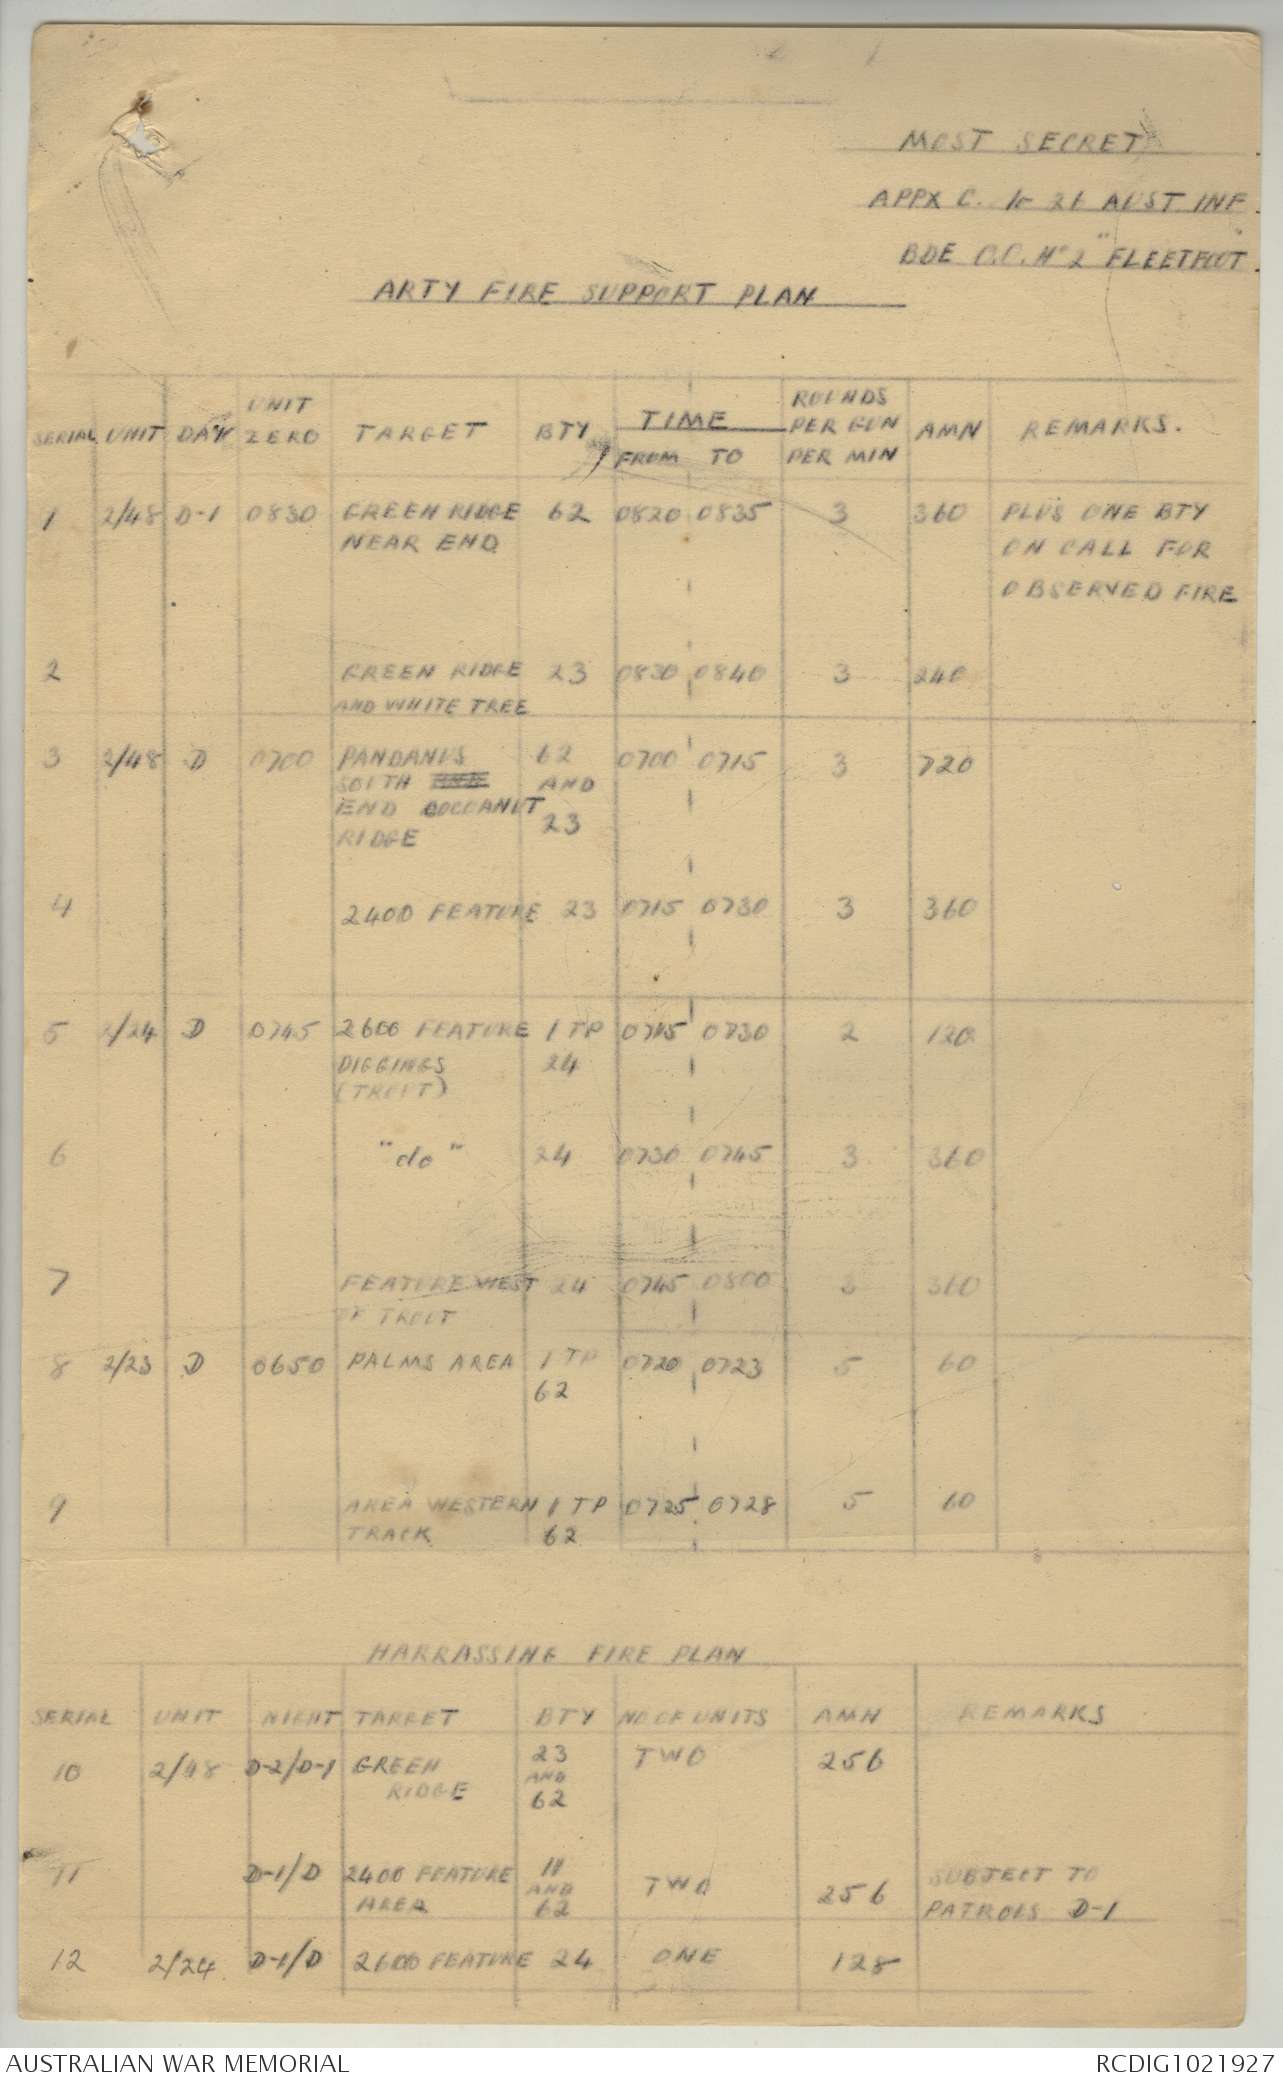 MOST SECRET
APPX C. to 26 AUST INF
BDE O.O. No 2 "FLEETFOOT"
ARTY FIRE SUPPORT PLAN
SERIAL UNIT DAY UNIT ZERO TARGET BTY TIME FROM TO ROUNDS PER GUN PER MIN AMN REMARKS.
1 2/48 D-1 0830 GREEN RIDGE 62 0820 0835 3 360 PLUS ONE BTY
NEAR END ON CALL FOR
OBSERVED FIRE
2 GREEN RIDGE 23 0830 0840 3 240
AND WHITE TREE
3 2/48 D 0700 PANDANUS 62 0700 0715 3 720
SOUTH AND
END COCOANUT 23
RIDGE
4 2400 FEATURE 23 0715 0730 3 360
5 2/24 D 0745 2600 FEATURE 1 TP 0715 0730 2 120
DIGGINGS 24
(TROUT)
6 "do" 24 0730 0745 3 360
7 FEATURE WEST 24 0745 0800 3 360
OF TROUT
8 2/23 D 0650 PALMS AREA 1 TP 0720 0723 5 60
62
9 AREA WESTERN 1 TP 0725 0728 5 60
TRACK 62
HARRASSING FIRE PLAN
SERIAL UNIT NIGHT TARGET BTY NO OF UNITS AMN REMARKS
10 2/48 D-2/D-1 GREEN 23 TWO 256
RIDGE AND
62
11 D-1/D 2400 FEATURE 11 TWO 256 SUBJECT TO
AREA AND PATROLS D-1
62
12 2/24 D-1/D 2600 FEATURE 24 ONE 128
AUSTRALIAN WAR MEMORIAL RCDIG1021927